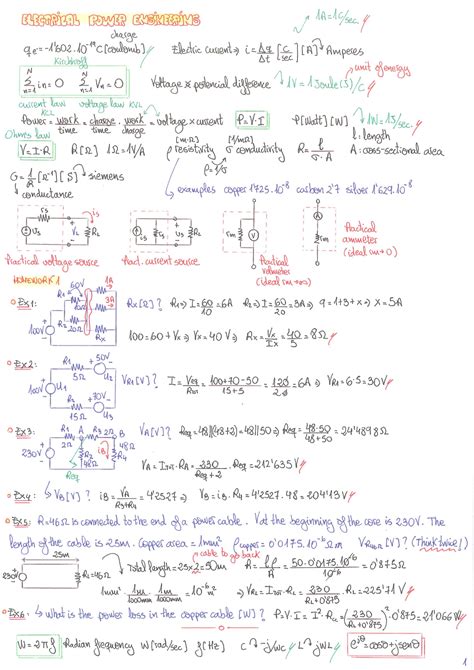 ELECTRICAL POWER ENGINEERING
1A=1C/sec.
charge
qe=-1'602.10⁻¹⁹ C [coulomb]
Electric current → i = Δq/Δt [C/sec] [A] Amperes
Kirchhoff
unit of energy
N Σ n=1 in = 0
N Σ n=1 Vn = 0
Voltage → potencial difference
1V = 1Joule (J)/C
current law KCL
voltage law KVL
1W = 1J/sec.
Power = work/time = charge/time . work/charge = voltage x current
P=V·I
P[watt] [W]
Ohms law
V=I·R
R [Ω] 1Ω=1V/A
[m·Ω] ρ resistivity
[1/mΩ] σ conductivity
ρ=1/σ
R = l/(σ·A)
l: length
A: cross-sectional area
G = 1/R [Ω⁻¹] [S] siemens
conductance
examples copper 1'725.10⁻⁸ carbon 2'7 silver 1'629.10⁻⁸
Practical voltage source
Pract. current source
Practical voltmeter (ideal rm→∞)
Practical ammeter (ideal rm→0)
HOMEWORK 1
Ex1:
100V
60V
1A
3A
Rx [Ω]? R1 ⇒ I = 60/10 = 6A R2 ⇒ I = 60/20 = 3A ⇒ 9 = 1+3+x ⇒ x = 5A
100 = 60 + Vx ⇒ Vx = 40V ⇒ Rx = Vx/Ix = 40/5 = 8Ω
Ex2:
100V
50V
R1 5Ω
R2 15Ω
30V
VR1 [V]? = 120/20 = 6A ⇒ VR1 = 6·5 = 30V
Ex3:
230V
R1 2Ω
R3 2Ω
48Ω
VA [V]? Req = 48||(48+2) = 48||50 ⇒ Req = 48·50/48+50 = 24'4898Ω
VA = IT·RA = 230/Req+2 · Req = 212'635V
Ex4:
VB [V]? iB = VA/R3+R4 = 4'2527 ⇒ VB = iB·R4 = 4'2527·48 = 204'13V
Ex5: R=46Ω is connected to the end of a power cable. V at the beginning of the core is 230V. The
length of the cable is 25m. Copper area = 1mm² ρcopper = 0'0175.10⁻⁶ Ωm [V]? (Think twice!)
25m
cable to go back
230V
Total length = 25x2 = 50m
R = 0'0175.10⁻⁶·50/10⁻⁶ = 0'875Ω
1mm² · 1m/1000mm · 1m/1000mm = 10⁻⁶ m²
= 225'71V
Ex6: What is the power loss in the copper cable [W]? P = V·I = I²·R = (230/RL+0'875)² · 0'875 = 21'066W
W=2πf Radian frequency W [rad/sec] f [Hz]
C → -j/wc L → jwL
e^jθ = cosθ + jsenθ
1